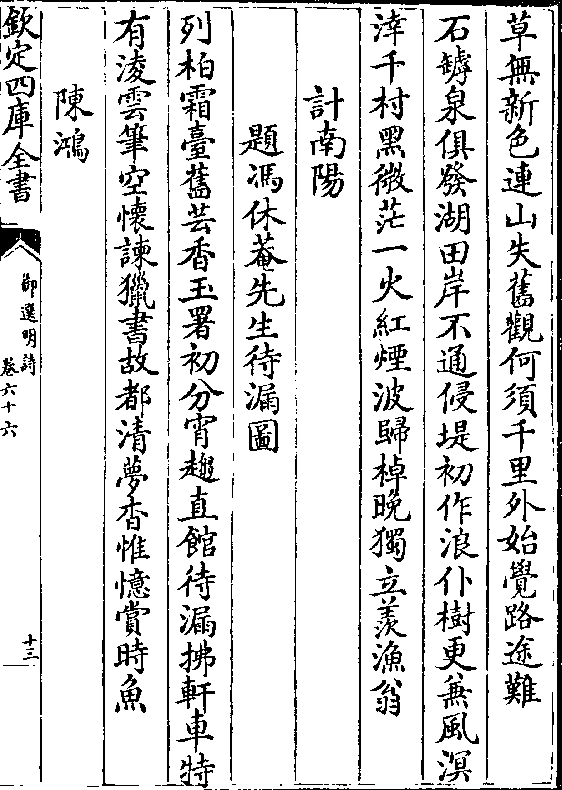 草無新色連山失舊觀何須千里外始覺路途難
石罅泉俱發湖田岸不通侵堤初作浪仆樹更兼風溟
涬千村黑微茫一火紅煙波歸棹晚獨立羨漁翁
計南陽
題馮休菴先生待漏圖
列柏霜臺舊芸香玉署初分宵趨直館待漏拂軒車特
有淩雲筆空懷諫獵書故都清夢杳惟憶賞時魚
陳鴻
欽定四庫全書
御選明詩
卷六十六
十三